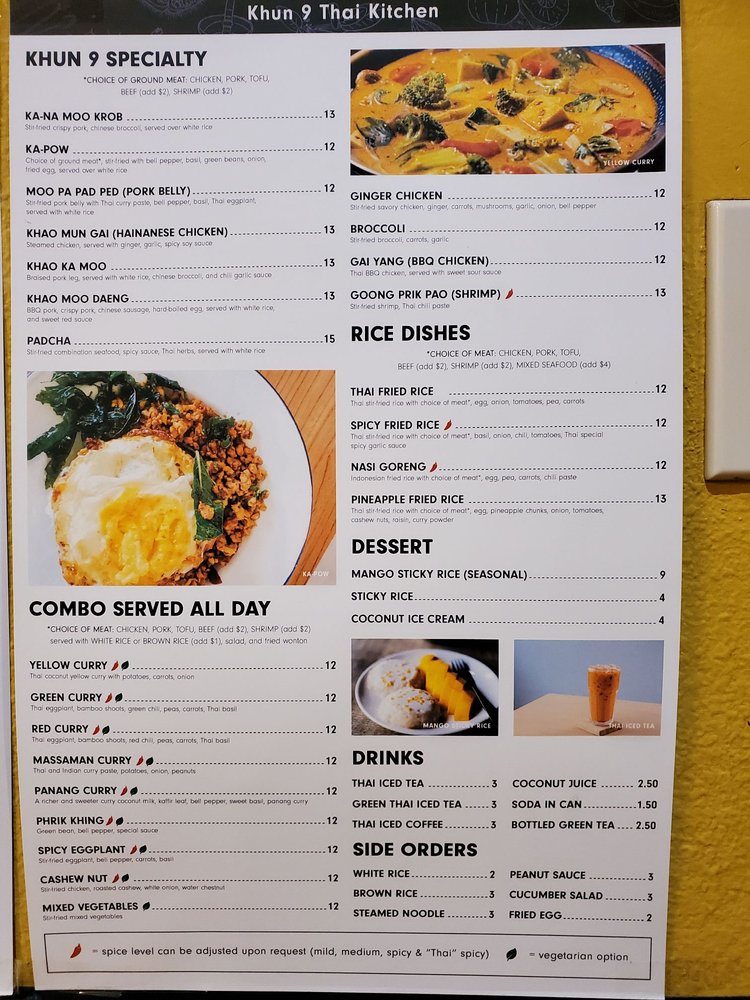 Khun 9 Thai Kitchen
KHUN 9 SPECIALTY
*CHOICE OF GROUND MEAT: CHICKEN, PORK, TOFU,
BEEF (add $2), SHRIMP (add $2)
KA-NA MOO KROB 13
Stir-fried crispy pork, chinese broccoli, served over white rice
KA-POW 12
Choice of ground meat*, stir-fried with bell pepper, basil, green beans, onion,
fried egg, served over white rice
MOO PA PAD PED (PORK BELLY) 12
Stir-fried pork belly with Thai curry paste, bell pepper, basil, Thai eggplant,
served with white rice
KHAO MUN GAI (HAINANESE CHICKEN) 13
Steamed chicken, served with ginger, garlic, spicy soy sauce
KHAO KA MOO 13
Braised pork leg, served with white rice, chinese broccoli, and chili garlic sauce
KHAO MOO DAENG 13
BBQ pork, crispy pork, chinese sausage, hard-boiled egg, served with white rice,
and sweet red sauce
PADCHA 15
Stir-fried combination seafood, spicy sauce, Thai herbs, served with white rice
KA-POW
COMBO SERVED ALL DAY
*CHOICE OF MEAT: CHICKEN, PORK, TOFU, BEEF (add $2), SHRIMP (add $2)
served with WHITE RICE or BROWN RICE (add $1), salad, and fried wonton
YELLOW CURRY 12
Thai coconut yellow curry with potatoes, carrots, onion
GREEN CURRY 12
Thai eggplant, bamboo shoots, green chili, peas, carrots, Thai basil
RED CURRY 12
Thai eggplant, bamboo shoots, red chili, peas, carrots, Thai basil
MASSAMAN CURRY 12
Thai and Indian curry paste, potatoes, onion, peanuts
PANANG CURRY 12
A richer and sweeter curry coconut milk, kaffir leaf, bell pepper, sweet basil, panang curry
PHRIK KHING 12
Green bean, bell pepper, special sauce
SPICY EGGPLANT 12
Stir-fried eggplant, bell pepper, carrots, basil
CASHEW NUT 12
Stir-fried chicken, roasted cashew, white onion, water chestnut
MIXED VEGETABLES 12
Stir-fried mixed vegetables
YELLOW CURRY
GINGER CHICKEN 12
Stir-fried savory chicken, ginger, carrots, mushrooms, garlic, onion, bell pepper
BROCCOLI 12
Stir-fried broccoli, carrots, garlic
GAI YANG (BBQ CHICKEN) 12
Thai BBQ chicken, served with sweet sour sauce
GOONG PRIK PAO (SHRIMP) 13
Stir-fried shrimp, Thai chili paste
RICE DISHES
*CHOICE OF MEAT: CHICKEN, PORK, TOFU,
BEEF (add $2), SHRIMP (add $2), MIXED SEAFOOD (add $4)
THAI FRIED RICE 12
Thai stir-fried rice with choice of meat*, egg, onion, tomatoes, pea, carrots
SPICY FRIED RICE 12
Thai stir-fried rice with choice of meat*, basil, onion, chili, tomatoes, Thai special
spicy garlic sauce
NASI GORENG 12
Indonesian fried rice with choice of meat*, egg, pea, carrots, chili paste
PINEAPPLE FRIED RICE 13
Thai stir-fried rice with choice of meat*, egg, pineapple chunks, onion, tomatoes,
cashew nuts, raisin, curry powder
DESSERT
MANGO STICKY RICE (SEASONAL) 9
STICKY RICE 4
COCONUT ICE CREAM 4
MANGO STICKY RICE
THAI ICED TEA
DRINKS
THAI ICED TEA 3
GREEN THAI ICED TEA 3
THAI ICED COFFEE 3
COCONUT JUICE 2.50
SODA IN CAN 1.50
BOTTLED GREEN TEA 2.50
SIDE ORDERS
WHITE RICE 2
BROWN RICE 3
STEAMED NOODLE 3
PEANUT SAUCE 3
CUCUMBER SALAD 3
FRIED EGG 2
= spice level can be adjusted upon request (mild, medium, spicy & "Thai" spicy)
= vegetarian option